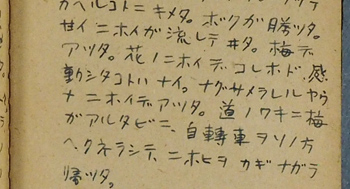 カヘルコトニキメタ。ボクガ勝ツタ。
甘イニホイガ流レテヰタ。梅デ
アツタ。花ノニホイデコレホド、感
動シタコトハナイ。ナグサメラレルヤウ
ナニホイデアツタ。道ノワキニ梅
ガアルタビニ、自轉車ヲソノ方
ヘクネラシテ、ニホヒヲカギナガラ
帰ツタ。